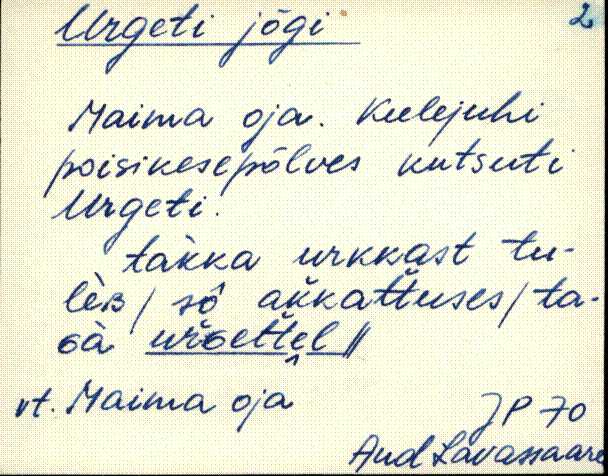 Urgeti jõgi 2
Maima oja. Keelejuhi
poisikesepõlves kutsuti
Urgeti.
takka urkkast tu-
lèʙ / sô akkattuses / ta-
urɢettel ||
vt. Maima oja
JP 70
Aud Lavassaare